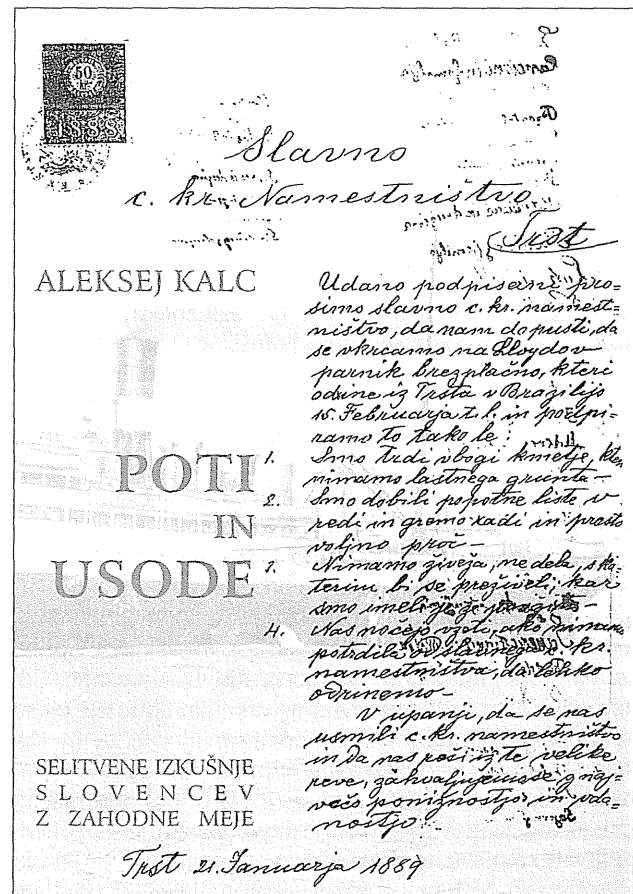 50
1888
Slavno
c. kr. Namestništvo
Trst
ALEKSEJ KALC
POTI
IN
USODE
SELITVENE IZKUŠNJE
SLOVENCEV
Z ZAHODNE MEJE
Udano podpisani pro=
simo slavno c. kr. namest=
ništvo, da nam dopusti, da
se vkrcamo na Lloydov
parnik brezplačno, kteri
odrine iz Trsta v Brazilijo
15. Februarja t. l. in podpi=
ramo to tako le:
1. Smo trdi ubogi kmetje, kter
nimamo lastnega grunta –
2. Smo dobili popotne liste v
redi in gremo radi in prosto
voljno proč –
3. Nimamo živeža, ne dela, s ka=
terim bi se preživeli; kar
smo imeli je že
4. Nas nočejo vzeti, ako nimamo
potrdila od slavnega c. kr.
namestništva, da lehko
odrinemo –
V upanji, da se nas
usmili c. kr. namestništvo
in da nas reši iz te velike
reve, zahvaljujemo se z naj=
večo ponižnostjo in uda=
nostjo
Trst 21. Januarja 1889